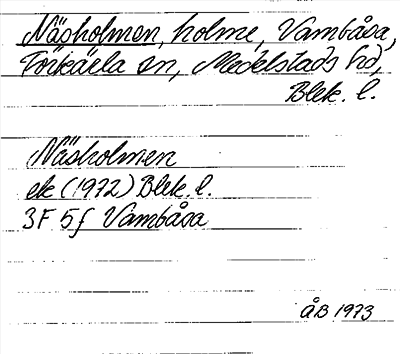 Näsholmen, holme, Vambåsa,
Förkärla sn, Medelstads hd,
Blek. l.
Näsholmen
ek (1972) Blek. l.
3F 5f Vambåsa
ÅB 1973